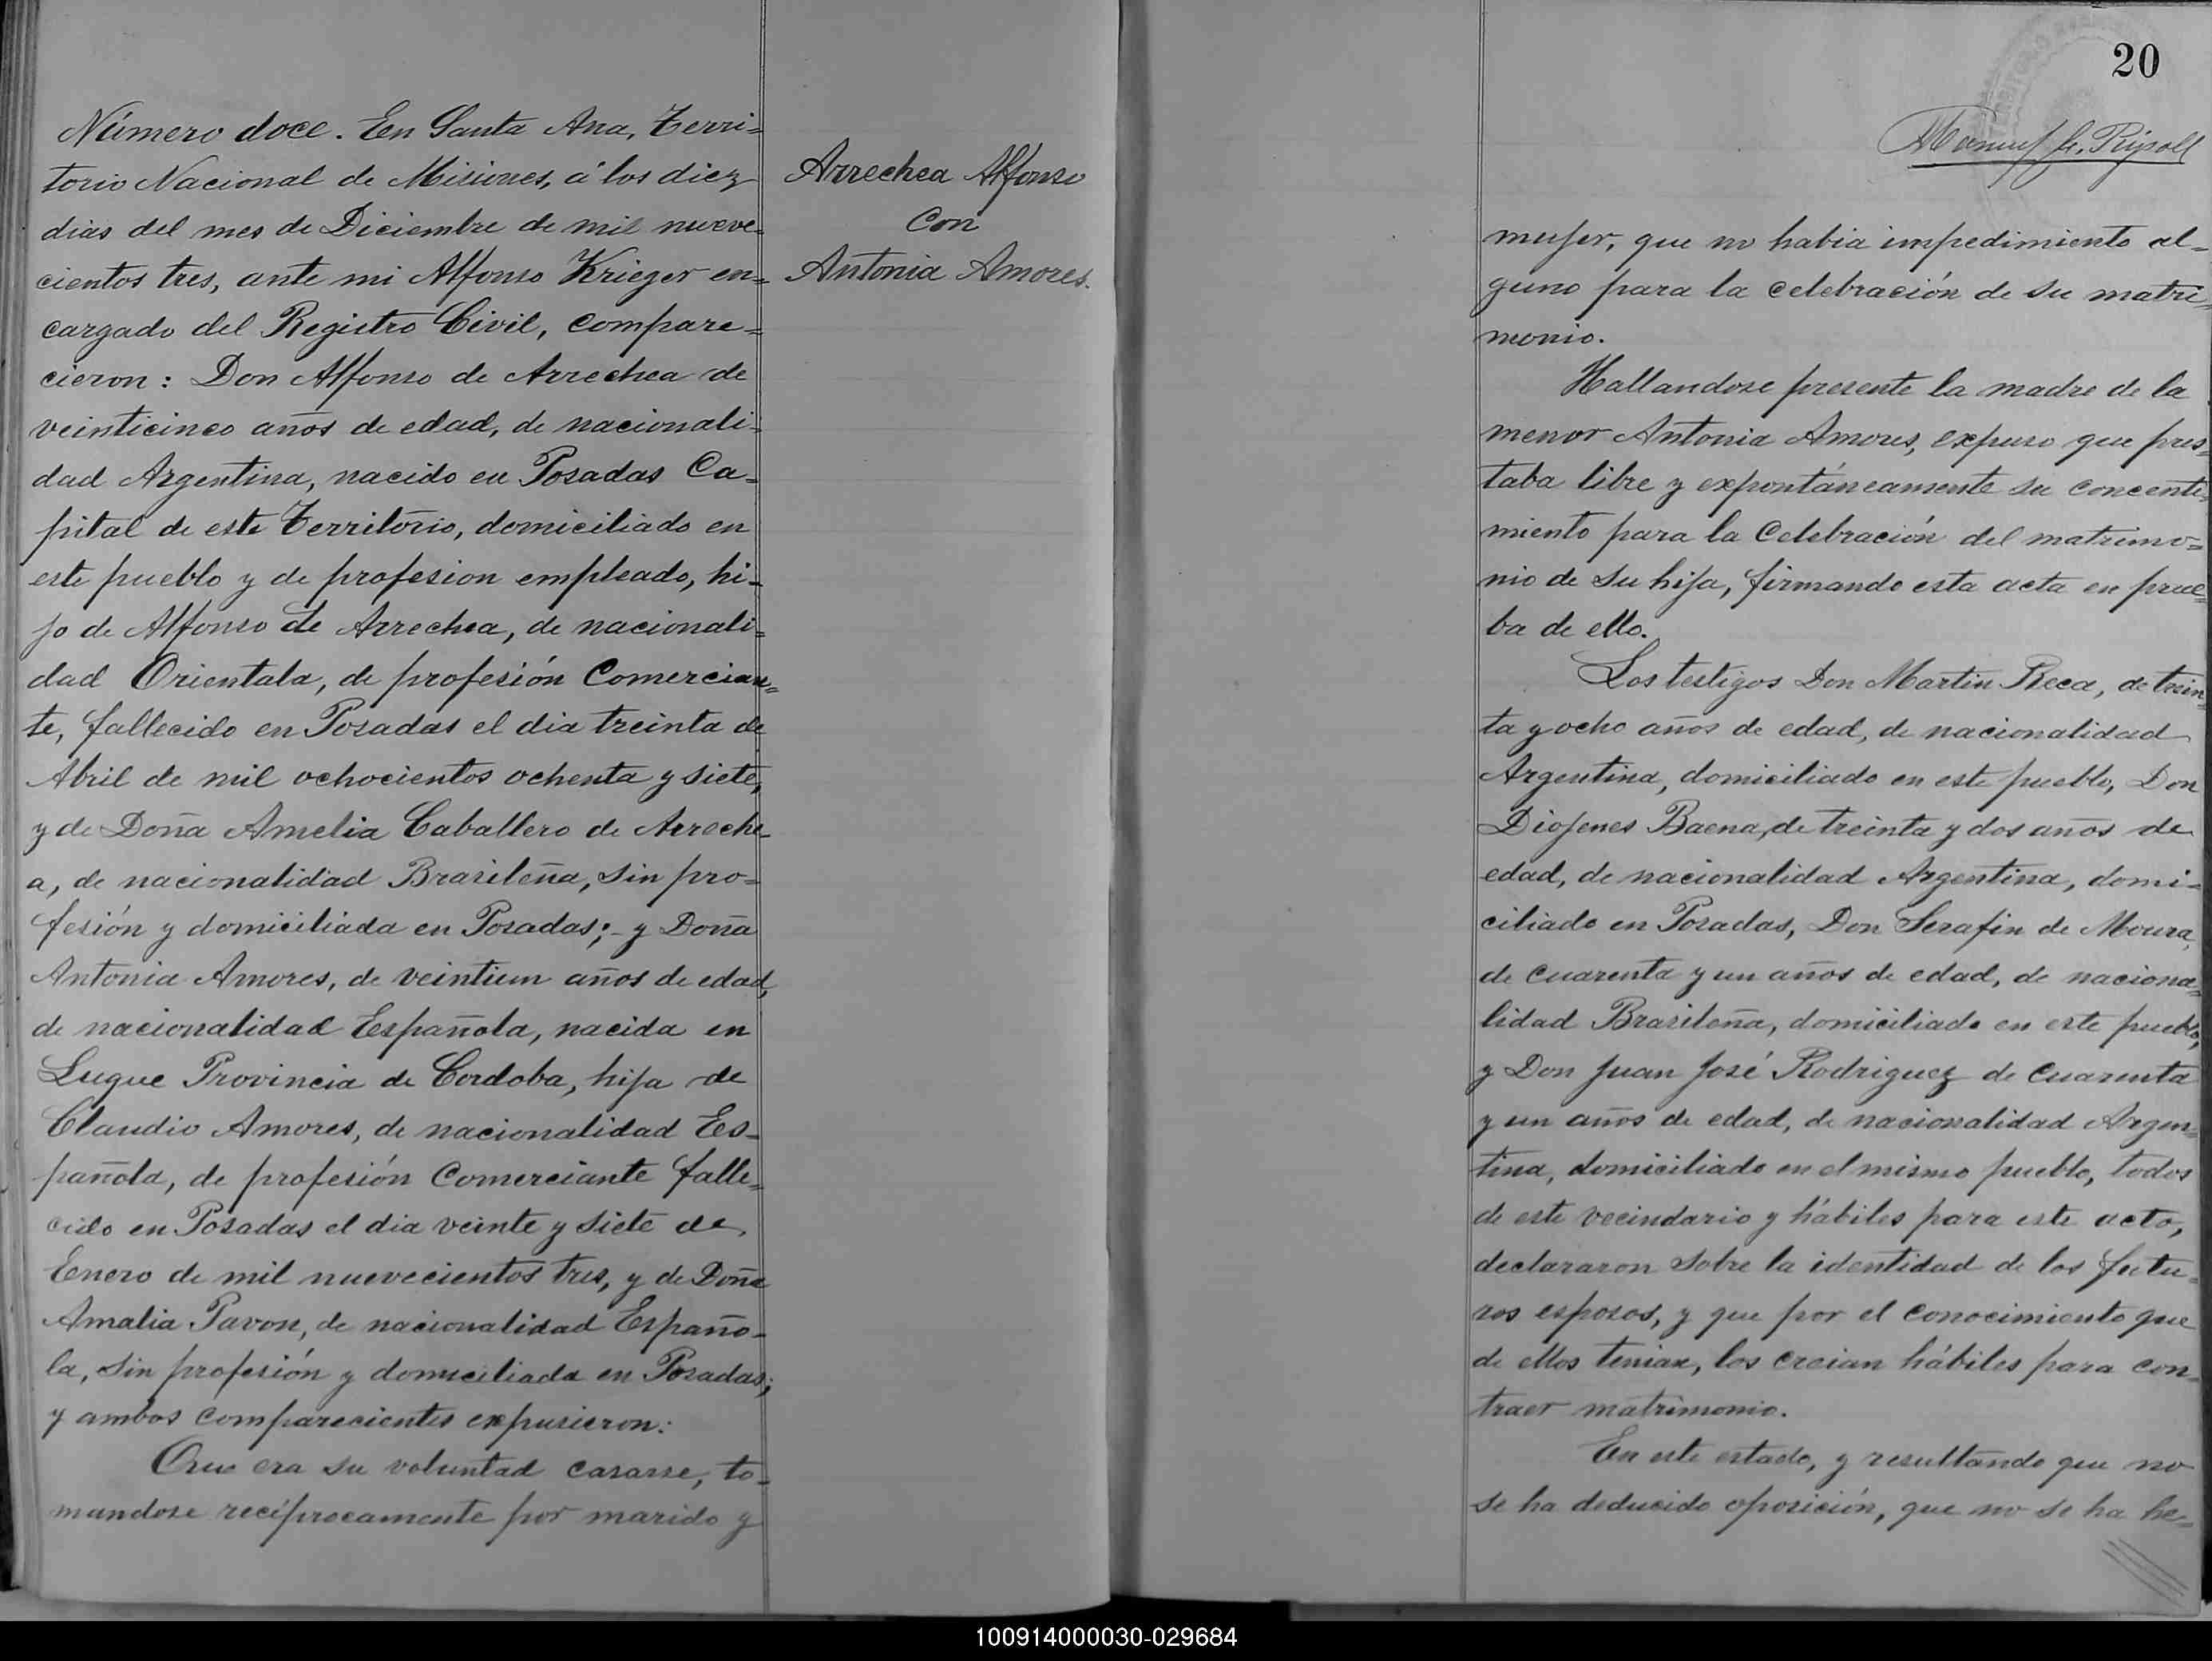 Número doce. En Santa Ana, Terri=
torio Nacional de Misiones, á los diez
dias del mes de Diciembre de mil nueve=
cientos tres, ante mi Alfonso Krieger en=
cargado del Registro Civil, compare=
cieron: Don Alfonso de Arrechea de
veinticinco años de edad, de nacionali=
dad Argentina, nacido en Posadas Ca=
pital de este Territorio, domiciliado en
este pueblo y de profesion empleado, hi=
jo de Alfonso de Arrechea, de nacionali=
dad Orientala, de profesión Comercian=
te, fallecido en Posadas el dia treinta de
Abril de mil ochocientos ochenta y siete,
y de Doña Amelia Caballero de Arreche=
a, de nacionalidad Brasileña, sin pro=
fesión y domiciliada en Posadas;- y Doña
Antonia Amores, de veintiun años de edad,
de nacionalidad Española, nacida en
Luque Provincia de Cordoba, hija de
Claudio Amores, de nacionalidad Es=
pañola, de profesión Comerciante falle=
cido en Posadas el dia veinte y siete de
Enero de mil nuevecientos tres, y de Doña
Amalia Pavon, de nacionalidad Españo=
la, sin profesión y domiciliada en Posadas;
y ambos comparecientes expusieron:
Que era su voluntad casarse, to=
mandose recíprocamente por marido y
Arrechea Alfonso
Con
Antonia Amores.
20
Manuel Ripoll
mujer, que no habia impedimiento al=
guno para la celebración de su matri=
monio.
Hallandose presente la madre de la
menor Antonia Amores, expuso que pres=
taba libre y expontáneamente su concenti=
miento para la Celebración del matrimo=
nio de su hija, firmando esta acta en prue=
ba de ello.
Los testigos Don Martin Reca, de trein=
ta y ocho años de edad, de nacionalidad
Argentina, domiciliado en este pueblo, Don
Diojenes Baena, de treinta y dos años de
edad, de nacionalidad Argentina, domi=
ciliado en Posadas, Don Serafin de Moura,
de cuarenta y un años de edad, de naciona=
lidad Brasileña, domiciliado en este pueblo,
y Don Juan José Rodriguez de cuarenta
y un años de edad, de nacionalidad Argen=
tina, domiciliado en el mismo pueblo, todos
de este vecindario y hábiles para este acto,
declararon sobre la identidad de los futu=
ros esposos, y que por el conocimiento que
de ellos tenian, los creian hábiles para con=
traer matrimonio.
En este estado, y resultando que no
se ha deducido oposición, que no se ha he=
100914000030-029684